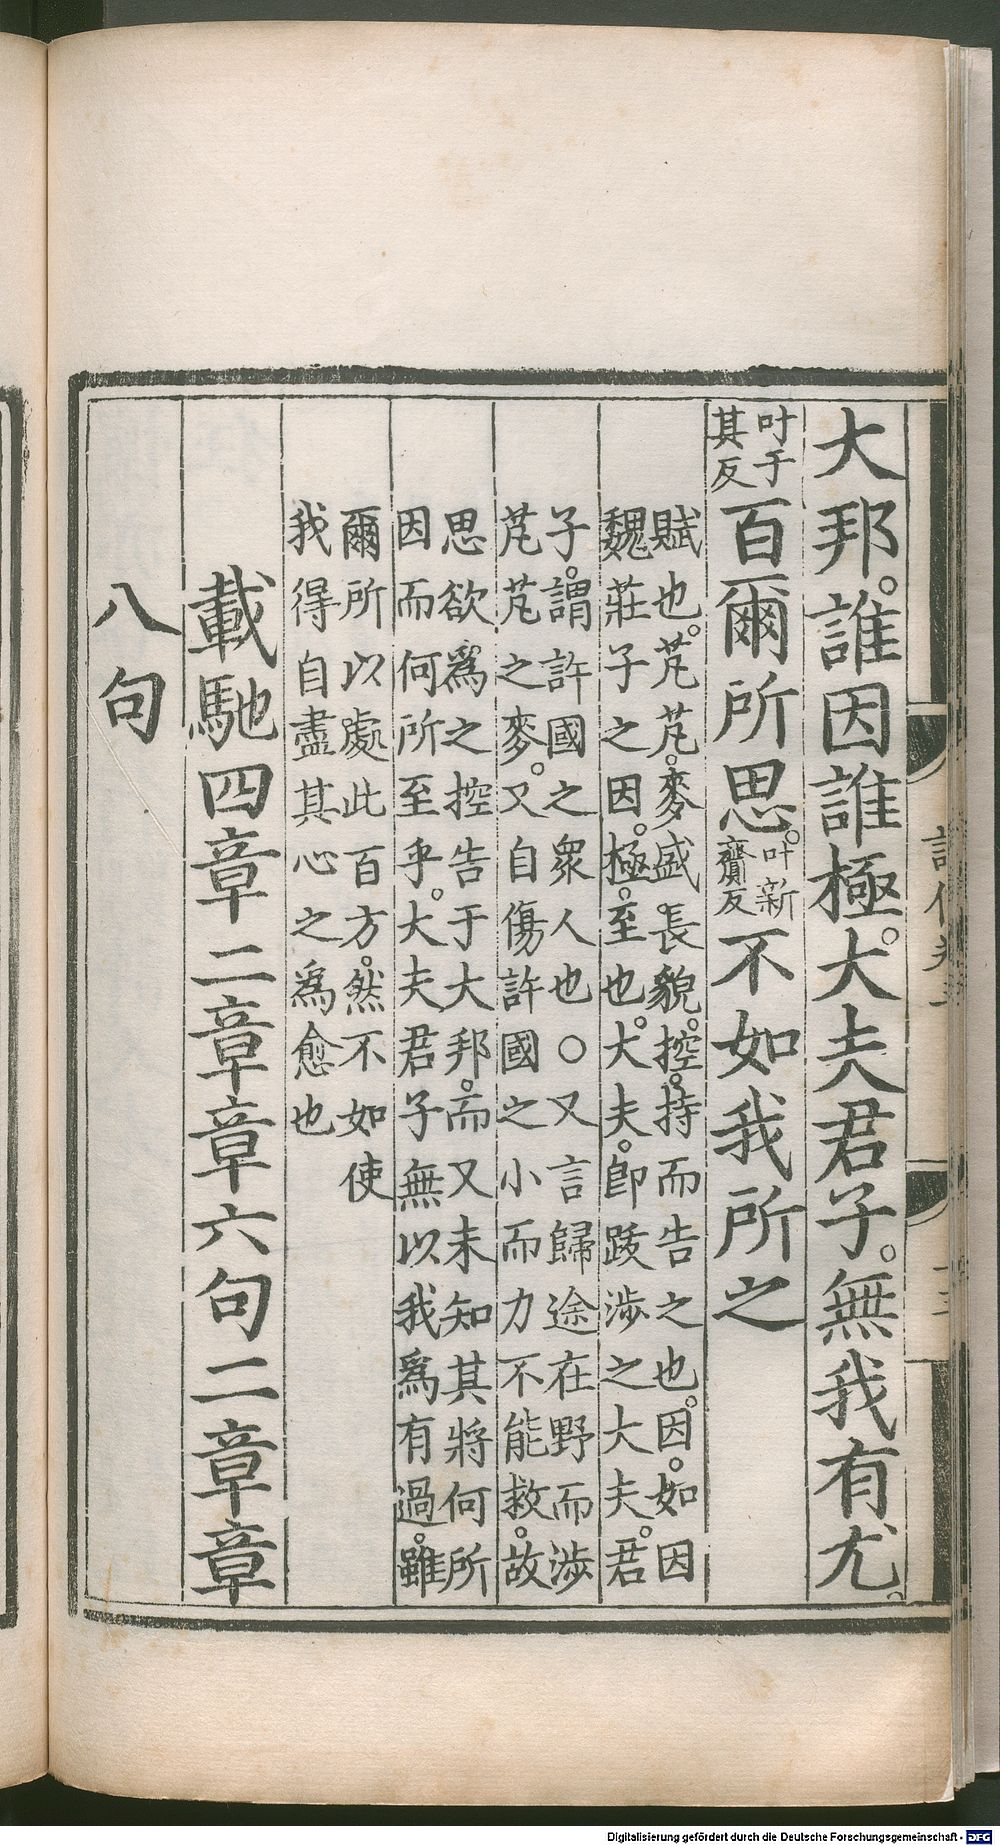 大邦。誰因誰極。大夫君子。無我有尤。
叶于其反百爾所思。叶新齎反不如我所之
賦也。芃芃。麥盛長貌。控。持而告之也。因。如因
魏莊子之因。極。至也。大夫。卽跋涉之大夫。君
子。謂許國之衆人也○又言歸途在野而涉
芃芃之麥。又自傷許國之小而力不能救。故
思欲爲之控告于大邦。而又未知其將何所
因而何所至乎。大夫君子無以我爲有過。雖
爾所以處此百方。然不如使
我得自盡其心之爲愈也
載馳四章二章章六句二章章
八句
Digitalisierung gefördert durch die Deutsche Forschungsgemeinschaft - DFG